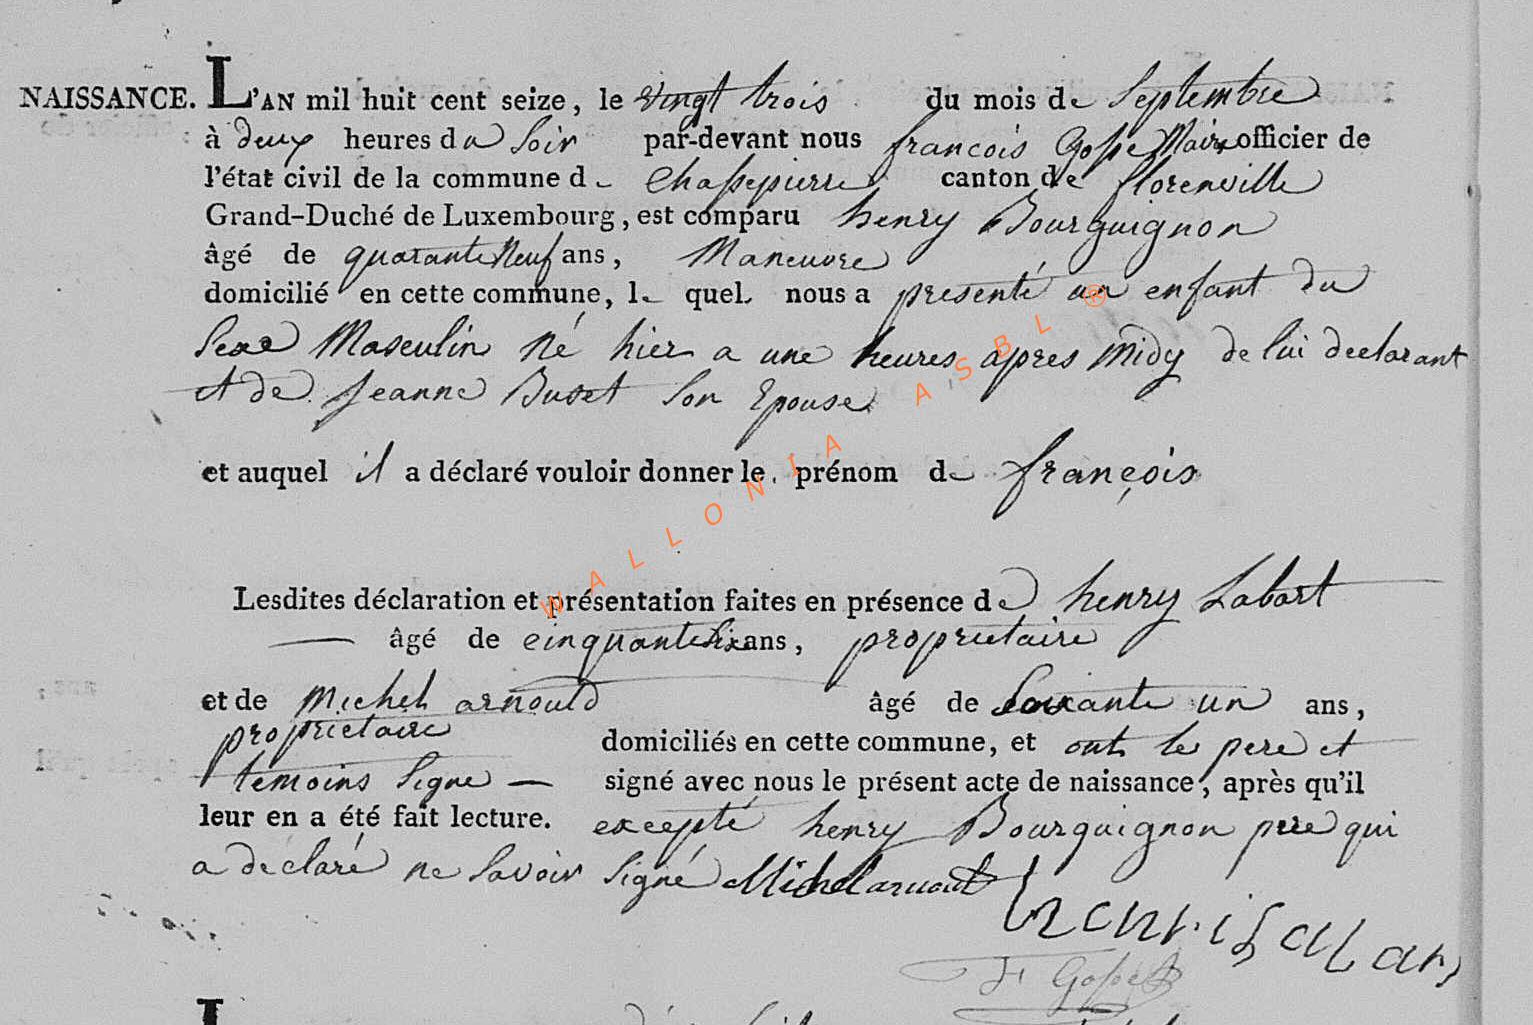 NAISSANCE. L'AN mil huit cent seize, le vingt trois du mois de Septembre
à deux heures du Soir par-devant nous françois Gosse Maire officier de
l'état civil de la commune de Chassepierre canton de florenville
Grand-Duché de Luxembourg, est comparu henry Bourguignon
âgé de quarante Neuf ans, Maneuvre
domicilié en cette commune, le quel nous a presenté un enfant du
Sexe Masculin né hier a une heures apres midy de lui declarant
et de Jeanne Buzet Son Epouse
et auquel il a déclaré vouloir donner le prénom de françois
Lesdites déclaration et présentation faites en présence de henry Labart
âgé de cinquante Six ans, proprietaire
et de Michel arnould âgé de Soixante un ans,
proprietaire domiciliés en cette commune, et ont le pere et
temoins Signe signé avec nous le présent acte de naissance, après qu'il
leur en a été fait lecture. excepté henry Bourguignon pere qui
a declaré ne Savoir Signé Michel arnout
henri
F Gosse
WALLONIA ASBL ®